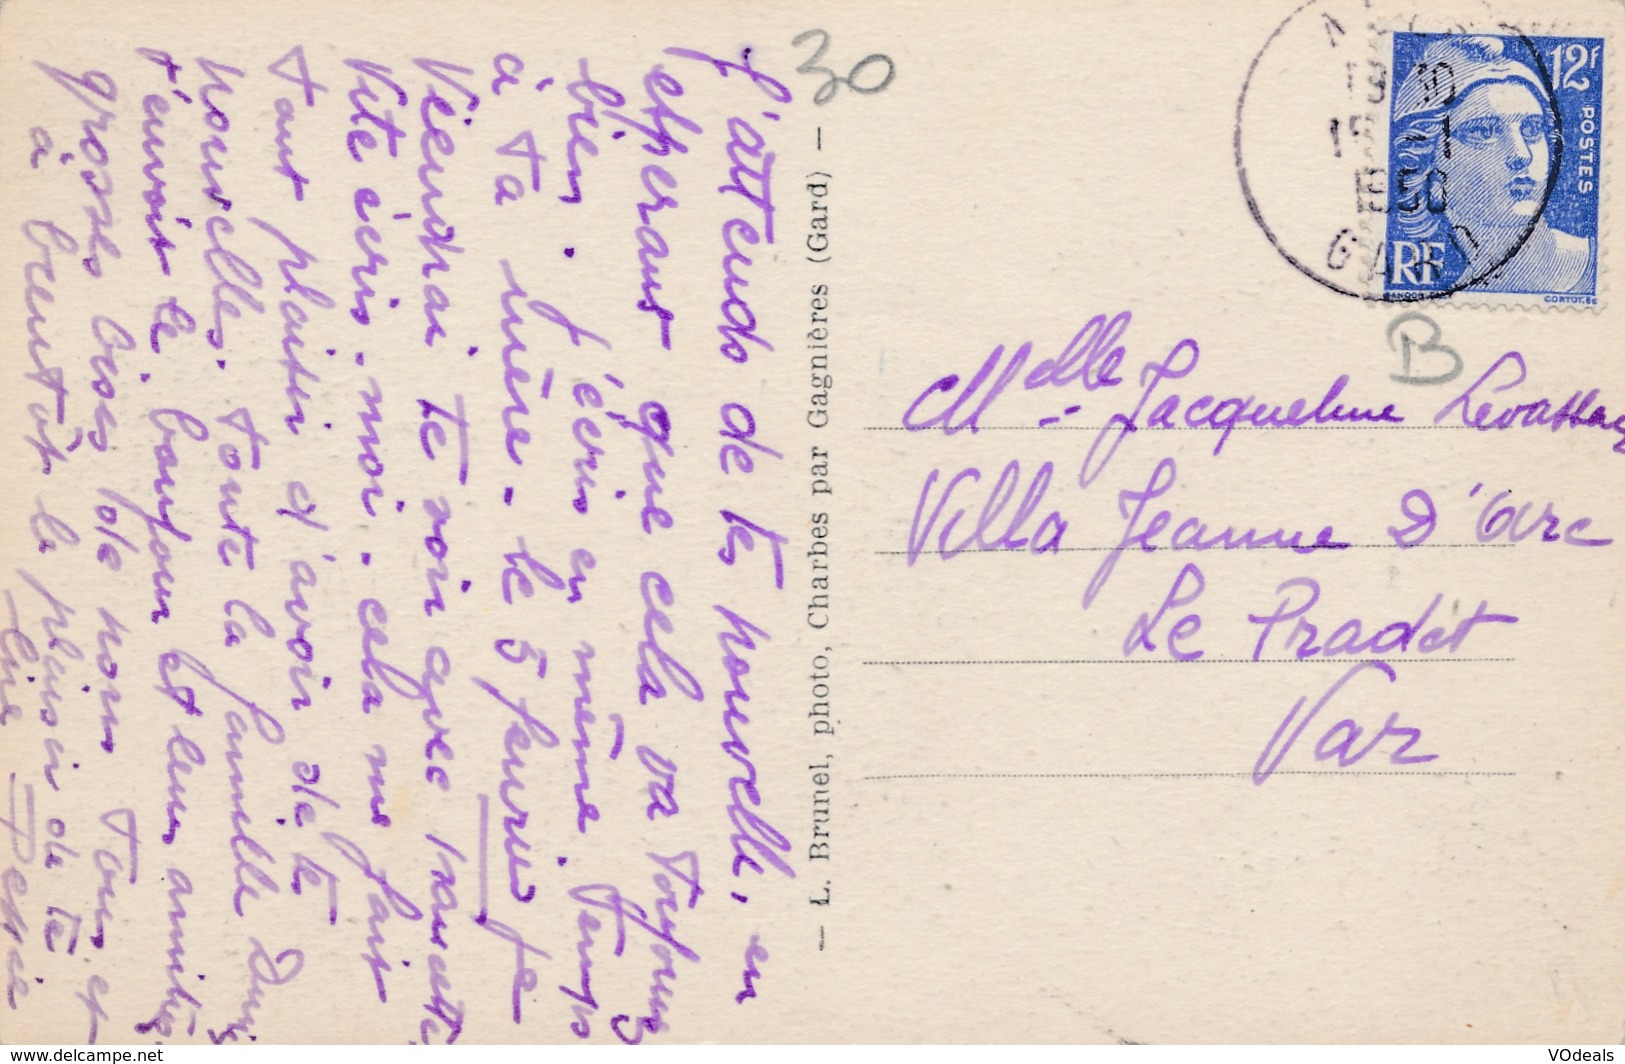 J'attends de tes nouvelle, en
espérant que cela va toujours
bien. J'écris en même temps
à ta mère. le 5 février je
viendrai te voir avec
vite écris-moi. cela me fait
tant plaisir d'avoir de te
nouvelles. toute la famille
t'envoie le bonjour et leur amitiés
grosses bises de nous tous et
à bientôt le plaisir de te
lire
— L. Brunel, photo, Charbes par Gagnières (Gard) —
30
12F
POSTES
RF
CORTOT. SC
GARD
B
Melle Jacqueline Levasseur
Villa Jeanne D'arc
Le Pradet
Var
www.delcampe.net
VOdeals